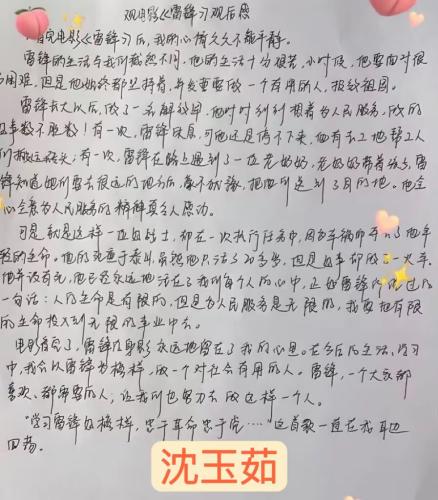 观电影《雷锋》观后感
看完电影《雷锋》后，我的心情久久不能平静。
雷锋的生活与我们截然不同，他的生活十分艰苦，小时候，他要面对很
多困难，但是他始终都坚持着，并发誓要做一个有用的人，报效祖国。
雷锋长大以后，做了一名解放军，他时时刻刻想着为人民服务，做的
好事数不胜数！有一次，雷锋休息，可他还是停不下来，他有去工地帮工人
们搬运砖头，有一次，雷锋在路上遇到了一位老奶奶，老奶奶带着孩子，雷
锋知道她们要去很远的地方后，毫不犹豫，把她们送到了目的地。他全
心全意为人民服务的精神真令人感动。
可是，就是这样一位好战士，却在一次执行任务中，因为车祸而
轻的生命。他的死重于泰山，虽然他只活了20多岁，但是好事却做了一火车。
他并没有死，他已经永远地活在了我们每个人的心中，正如雷锋所说过的
一句话：人的生命是有限的，但是为人民服务是无限的，我要把有限
的生命投入到无限的事业中去。
电影看完了，雷锋的身影永远地留在了我的心里。在今后的生活、学习
中，我会以雷锋为榜样，做一个对社会有用的人。雷锋，一个大家都
喜欢、都需要的人，让我们也努力去做这样一个人。
“学习雷锋好榜样，忠于革命忠于党……”这首歌一直在我耳边
回荡。
沈玉茹